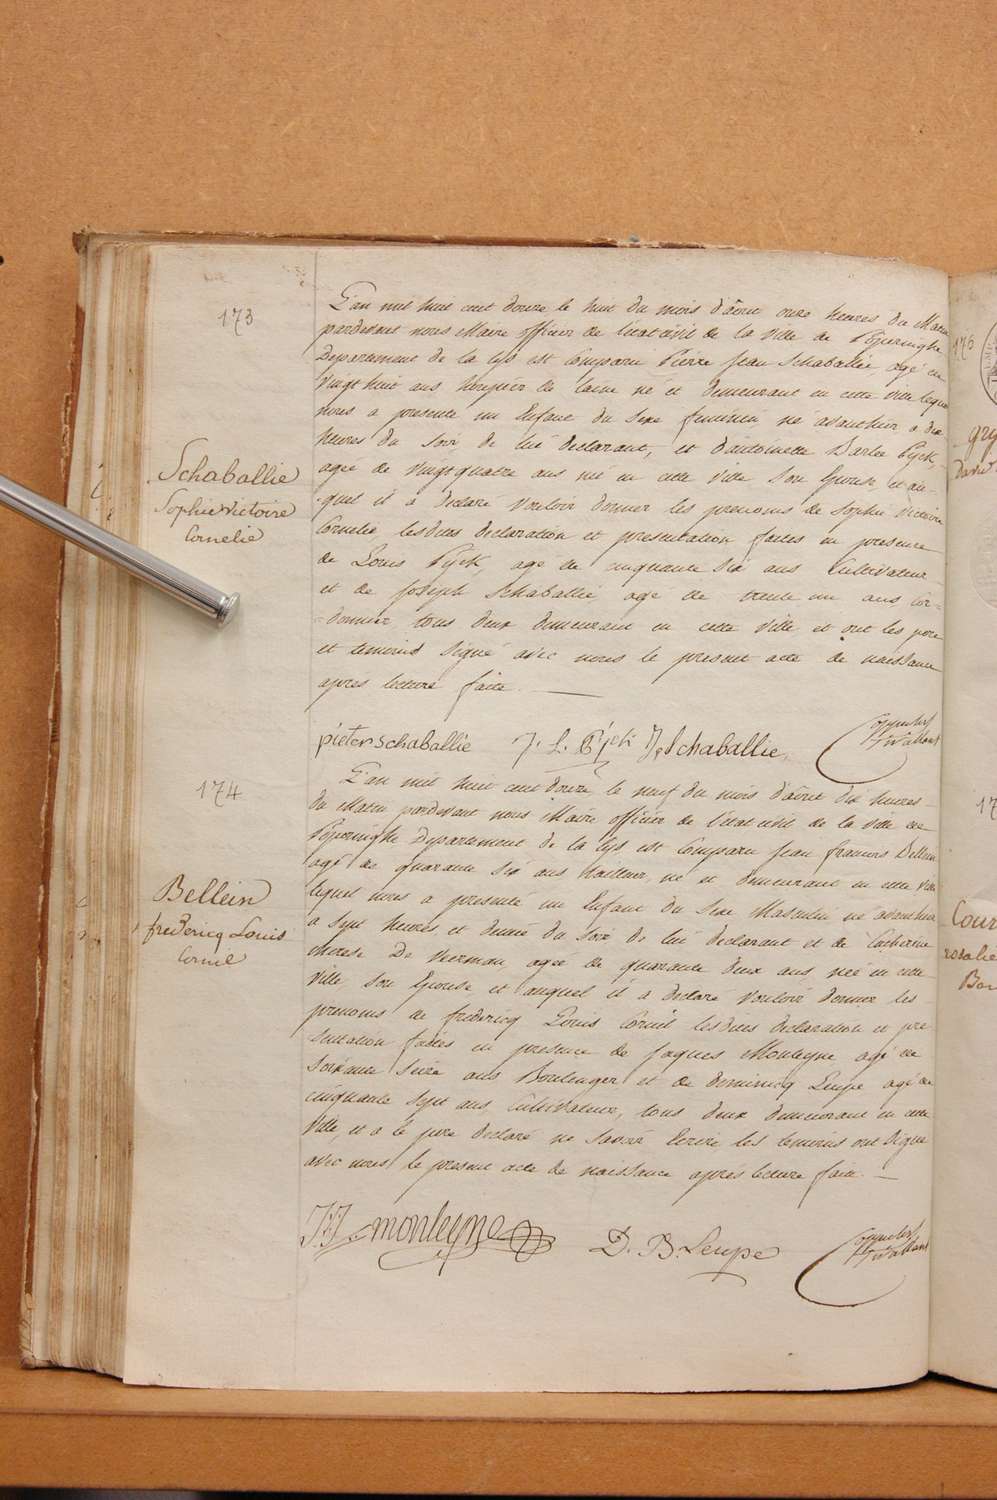 173
L'an mil huit cent douze le huit du mois d'août onze heures du Matin
pardevant nous Maire officier de l'état civil de la ville de Poperinghe
Departement de la Lys est comparu Pierre Jean Schaballie, agé de
vingt huit ans houpier de laine né et demeurant en cette ville lequel
nous a presenté un Enfant du Sexe feminin né avanthier a dix
heures du soir de lui declarant, et d'antoinette Barbe Pijck,
agée de vingtquatre ans né en cette ville Son Epouse, et au-
quel il a declaré vouloir donner les prenoms de Sophie Victoire
Cornelie lesdites declaration et presentation faites en presence
de Louis Pijck, agé de cinquante six ans Cultivateur
et de Joseph Schaballie agé de trente un ans Cor=
=donnier, tous deux demeurant en cette ville et ont les pere
et temoins signé avec nous le present acte de naissance
apres lecture faite.
Schaballie
Sophie Victoire
Cornelie
pieter schaballie J. L. Pijck J. Schaballie
174
L'an mil huit cent douze, le neuf du mois d'août dix heures
du Matin pardevant nous Maire officier de l'état civil de la ville de
Poperinghe Departement de la Lys est Comparu Jean francois Bellein
agé de quarante six ans tailleur, né et demeurant en cette ville
lequel nous a presenté un Enfant du Sexe Masculin né avanthier
a sept heures et demie du soir de lui declarant et de Catherine
therese De agée de quarante deux ans née en cette
ville son Epouse et auquel il a declaré vouloir donner les
prenoms de fredericq Louis Cornil lesdites declaration et pre
sentation faites en presence de Jaques Monteyne agé de
soixante seize ans Boulenger et de Dominicq Leupe agé de
cinquante sept ans, Cultivateur, tous deux demeurant en cette
ville, et a le pere declaré ne savoir Ecrire les temoins ont signé
avec nous le present acte de naissance après lecture faite.
Bellein
fredericq Louis
Cornil
monteyne D. B. Leupe
176
gry
David
17
Cour
rosalie